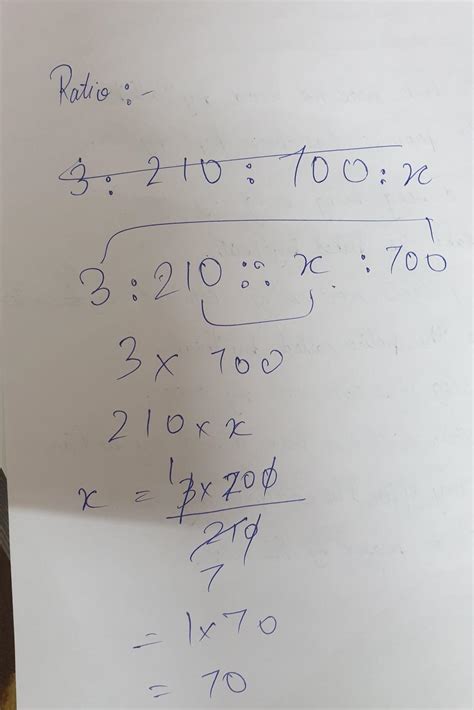 Ratio :-
3 : 210 : 700 : x
3 : 210 :: x : 700
3 x 700
210 x x
x = 1 3 x 700
210
7
= 1 x 70
= 70